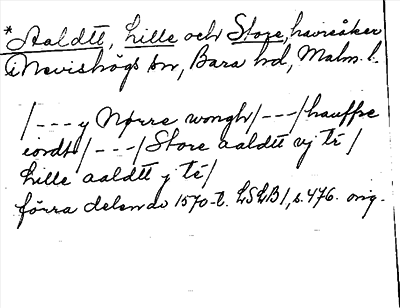 *Aaldtt, Lille och Store, havreåker
i Nevishögs sn, Bara hd, Malm. l.
/--- y Nørre wongh/---/hauffre
iordt/---/Store aaldtt vj te/
Lille aaldtt j te/
förra delen av 1570-t. LSLB1, s. 476. orig.